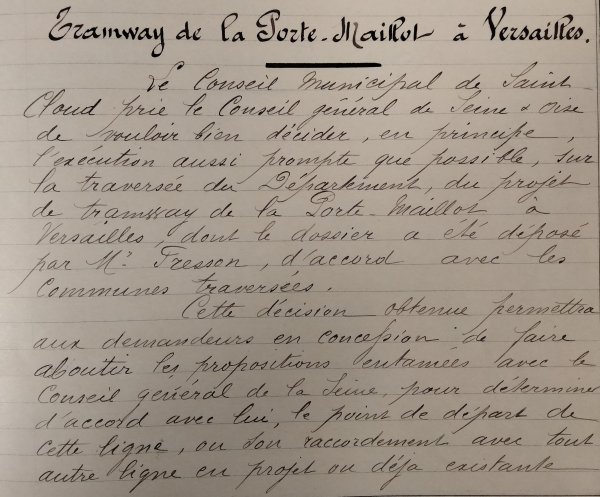 Tramway de la Porte-Maillot à Versailles.
Le Conseil Municipal de Saint
Cloud prie le Conseil général de Seine & Oise
de vouloir bien décider, en principe,
l'exécution aussi prompte que possible, sur
la traversée du Département, du projet
de tramway de la Porte-Maillot à
Versailles, dont le dossier a été déposé
par Mr. Fresson, d'accord avec les
Communes traversées.
Cette décision obtenue permettra
aux demandeurs en concession de faire
aboutir les propositions entamées avec le
Conseil général de la Seine, pour déterminer
d'accord avec lui, le point de départ de
cette ligne, ou son raccordement avec tout
autre ligne en projet ou déja existante